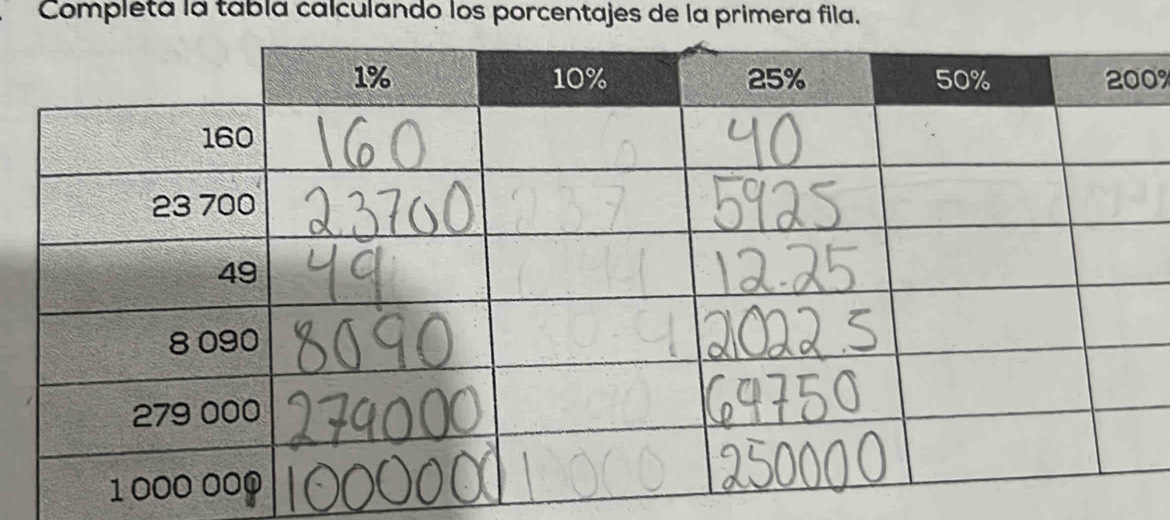 Completa la tabla calculando los porcentajes de la primera fila.
1% 10% 25% 50% 200%
160 160 40
23 700 23700 237 5925
49 49 12.25
8 090 8090 2022.5
279 000 279000 69750
1 000 000 1000000 250000